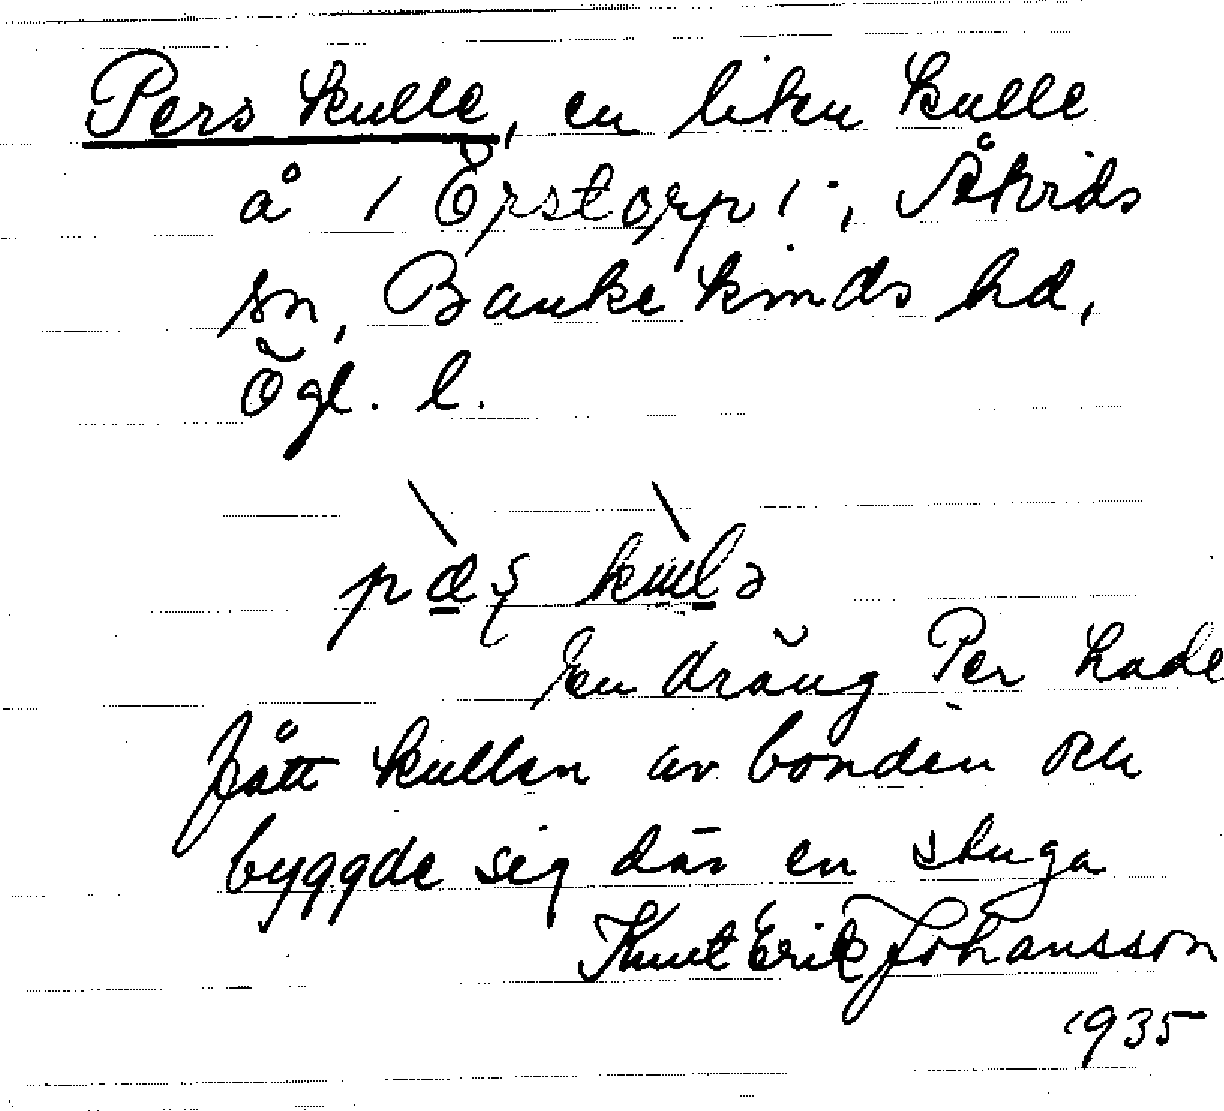 Pers kulle, en liten kulle
å / Örstorp /, Åtvids
sn, Bankekinds hd,
Ögl. l.
En dräng Per hade
fått kullen av bonden och
byggde sig där en stuga
Knut Erik Johansson
1935